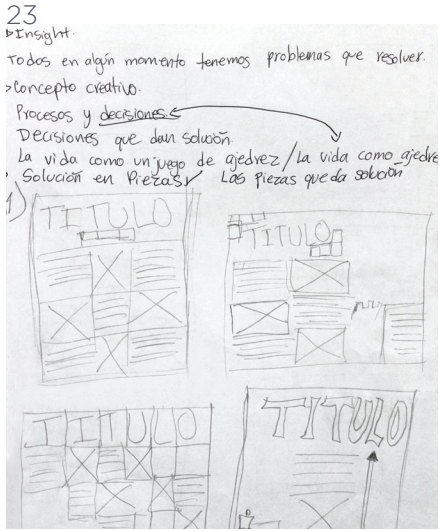 23
Insight.
Todos en algún momento tenemos problemas que resolver.
Concepto creativo.
Procesos y decisiones.
Decisiones que dan solución.
La vida como un juego de ajedrez / La vida como ajedre
Solución en Piezas Las Piezas que da solución
1)
TITULO
TITULO
TITULO
TITULO